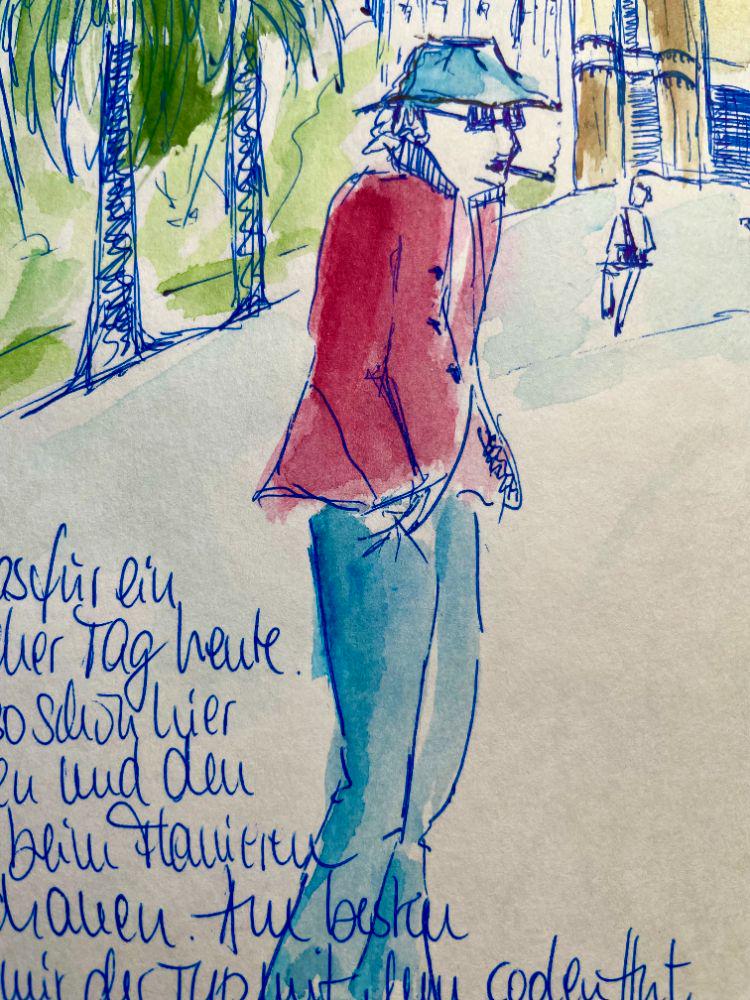 asfür ein
cher Tag heute.
so schön hier
en und den
beim Flanieren
chauen. Am besten
mir der Typ mit dem Hut